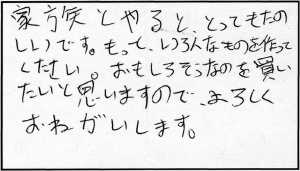 家族とやると、とってもたの
しいです。もっと、いろんなものを作って
ください。おもしろそうなのを買い
たいと思いますので、よろしく
おねがいします。